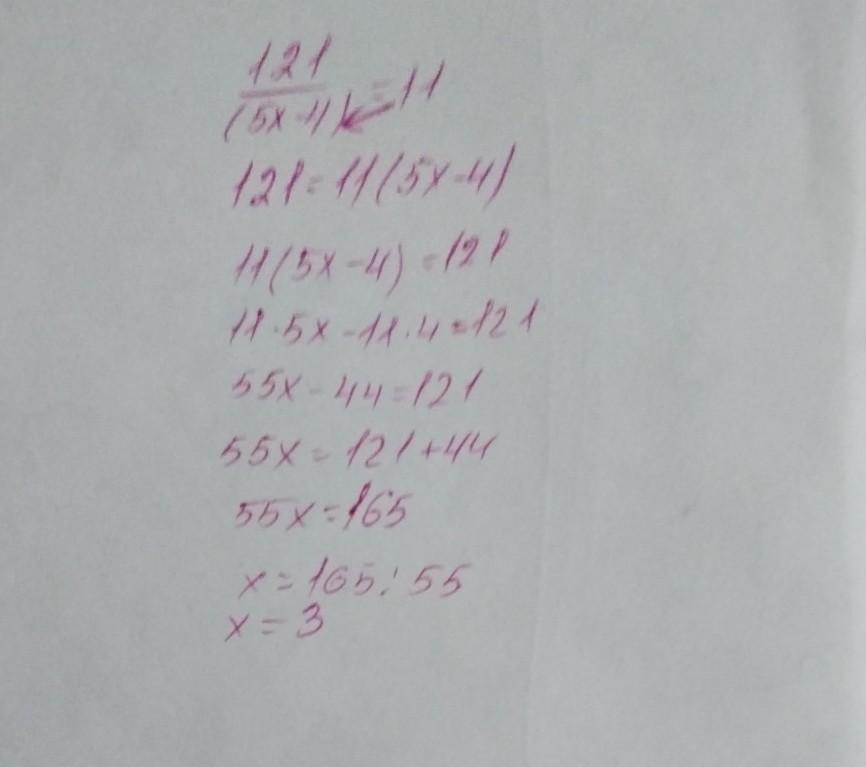 121
(5x-4) =11
121=11(5x-4)
11(5x-4)=121
11·5x-11·4=121
55x-44=121
55x=121+44
55x=165
x=165:55
x=3